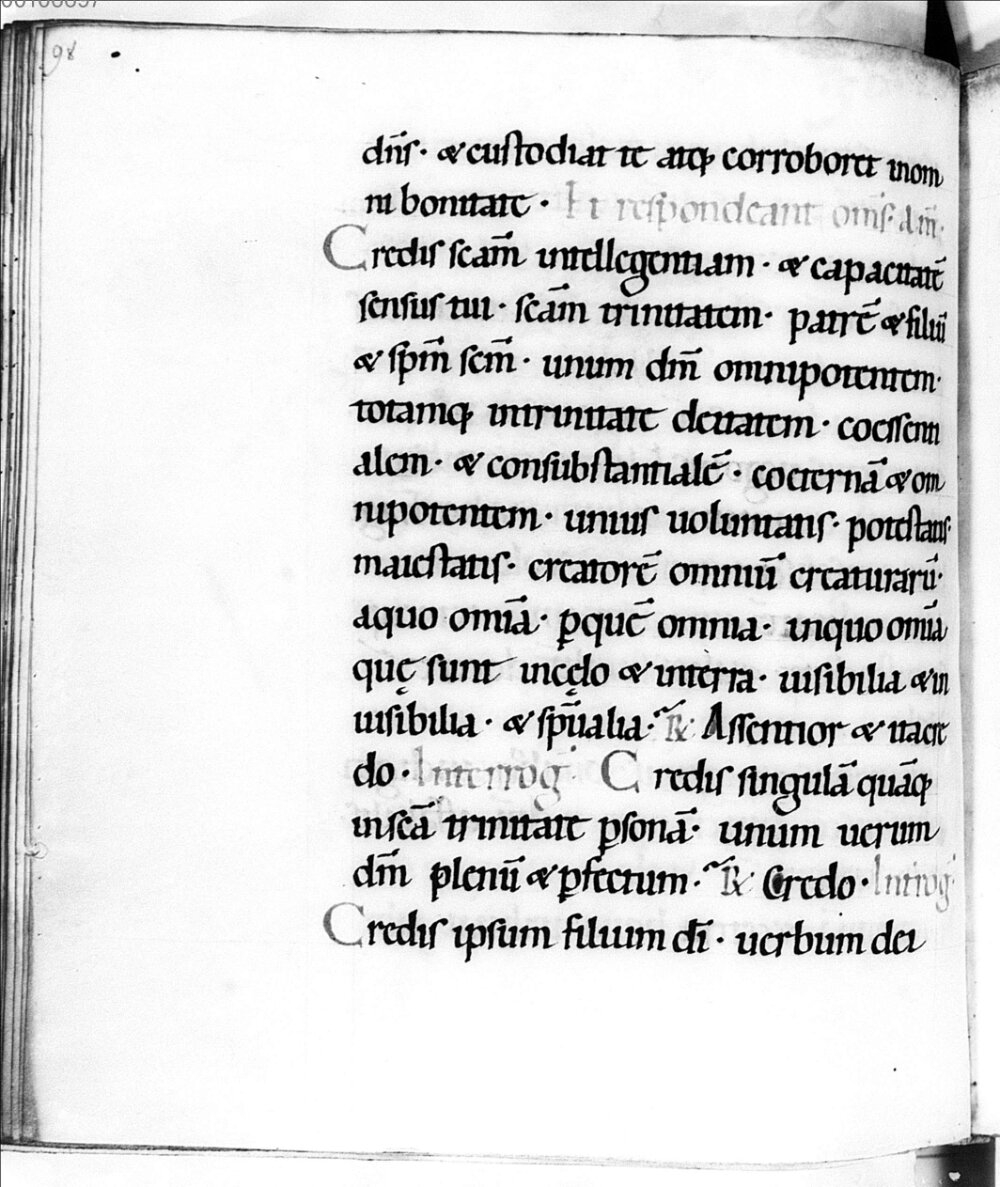 98
dn̄s · & custodiat te atq; corroboret inom
ni bonitate · Et respondeant om̄s. Am̄.
Credis scām intellegentiam · & capacitatē
sensus tui · scām trinitatem · patrē & filiū
& spm̄ scm̄ · unum dm̄ omnipotentem ·
totamq; intrinitate deitatem · coessenti
alem · & consubstantialē · coeternā & om
nipotentem · unius uoluntatis · potestatis ·
maiestatis · creatorē omniū creaturarū ·
aquo om̄ia · ꝑquē omnia · inquo om̄ia
quę sunt incęlo & interra · uisibilia & in
uisibilia · & spūalia · ℟ Assentior & itacre
do · Interrog̃ Credis singulā quāq;
inscā trinitate ꝑsonā · unum uerum
dm̄ plenū & ꝑfectum · ℟ Credo · Introg̃
Credis ipsum filium dī · uerbum dei